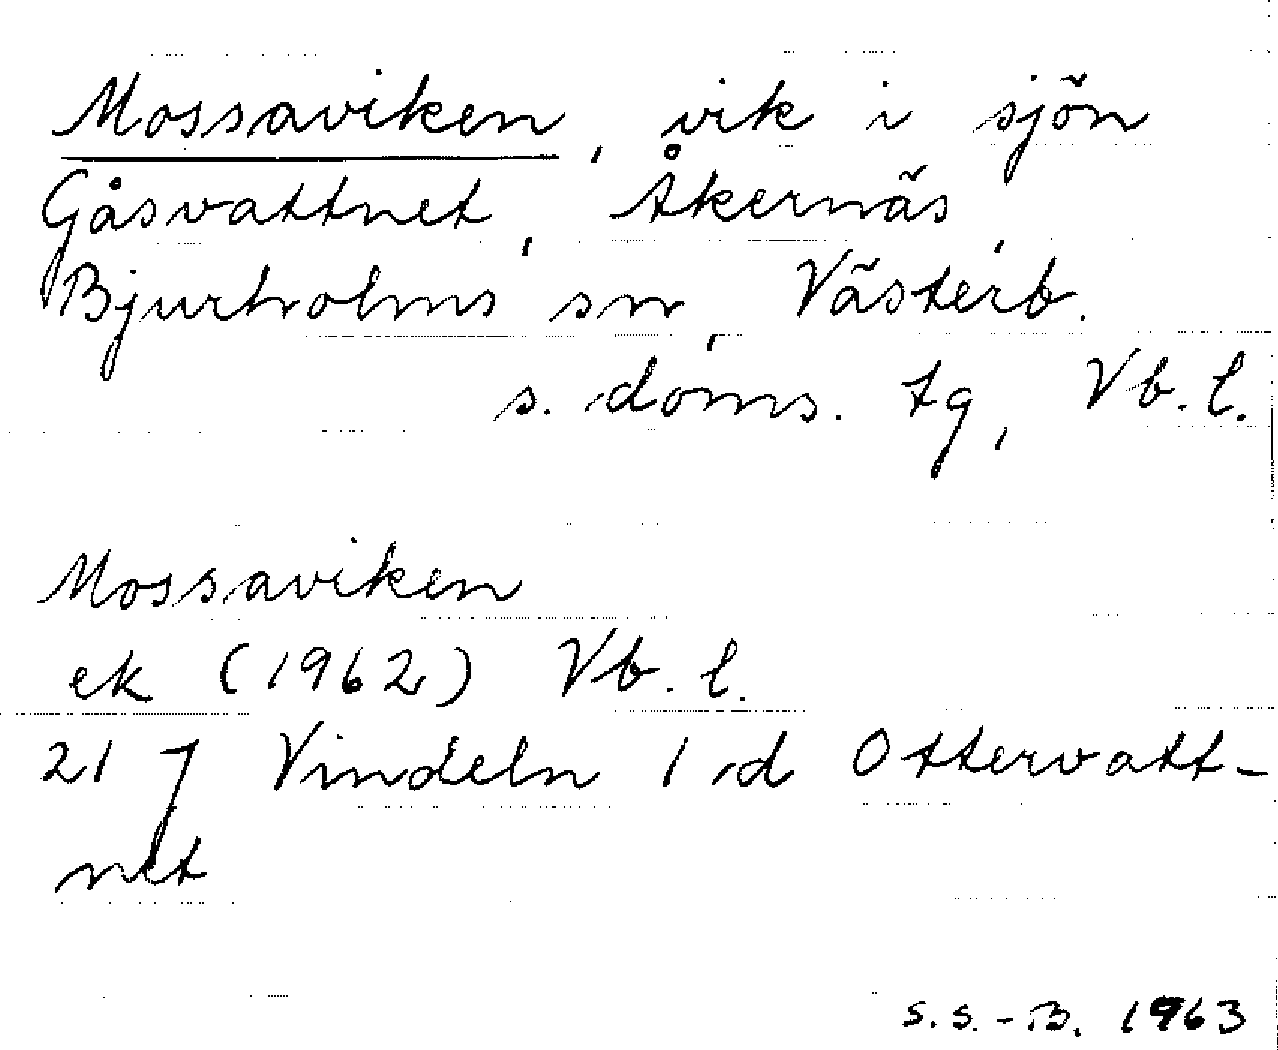 Mossaviken, vik i sjön
Gåsvattnet, Åkernäs,
Bjurholms sn, Västerb.
s. doms. tg, Vb. l.
Mossaviken
ek (1962) Vb. l.
21 J Vindeln 1 d Ottervatt-
net
S. S. - B. 1963